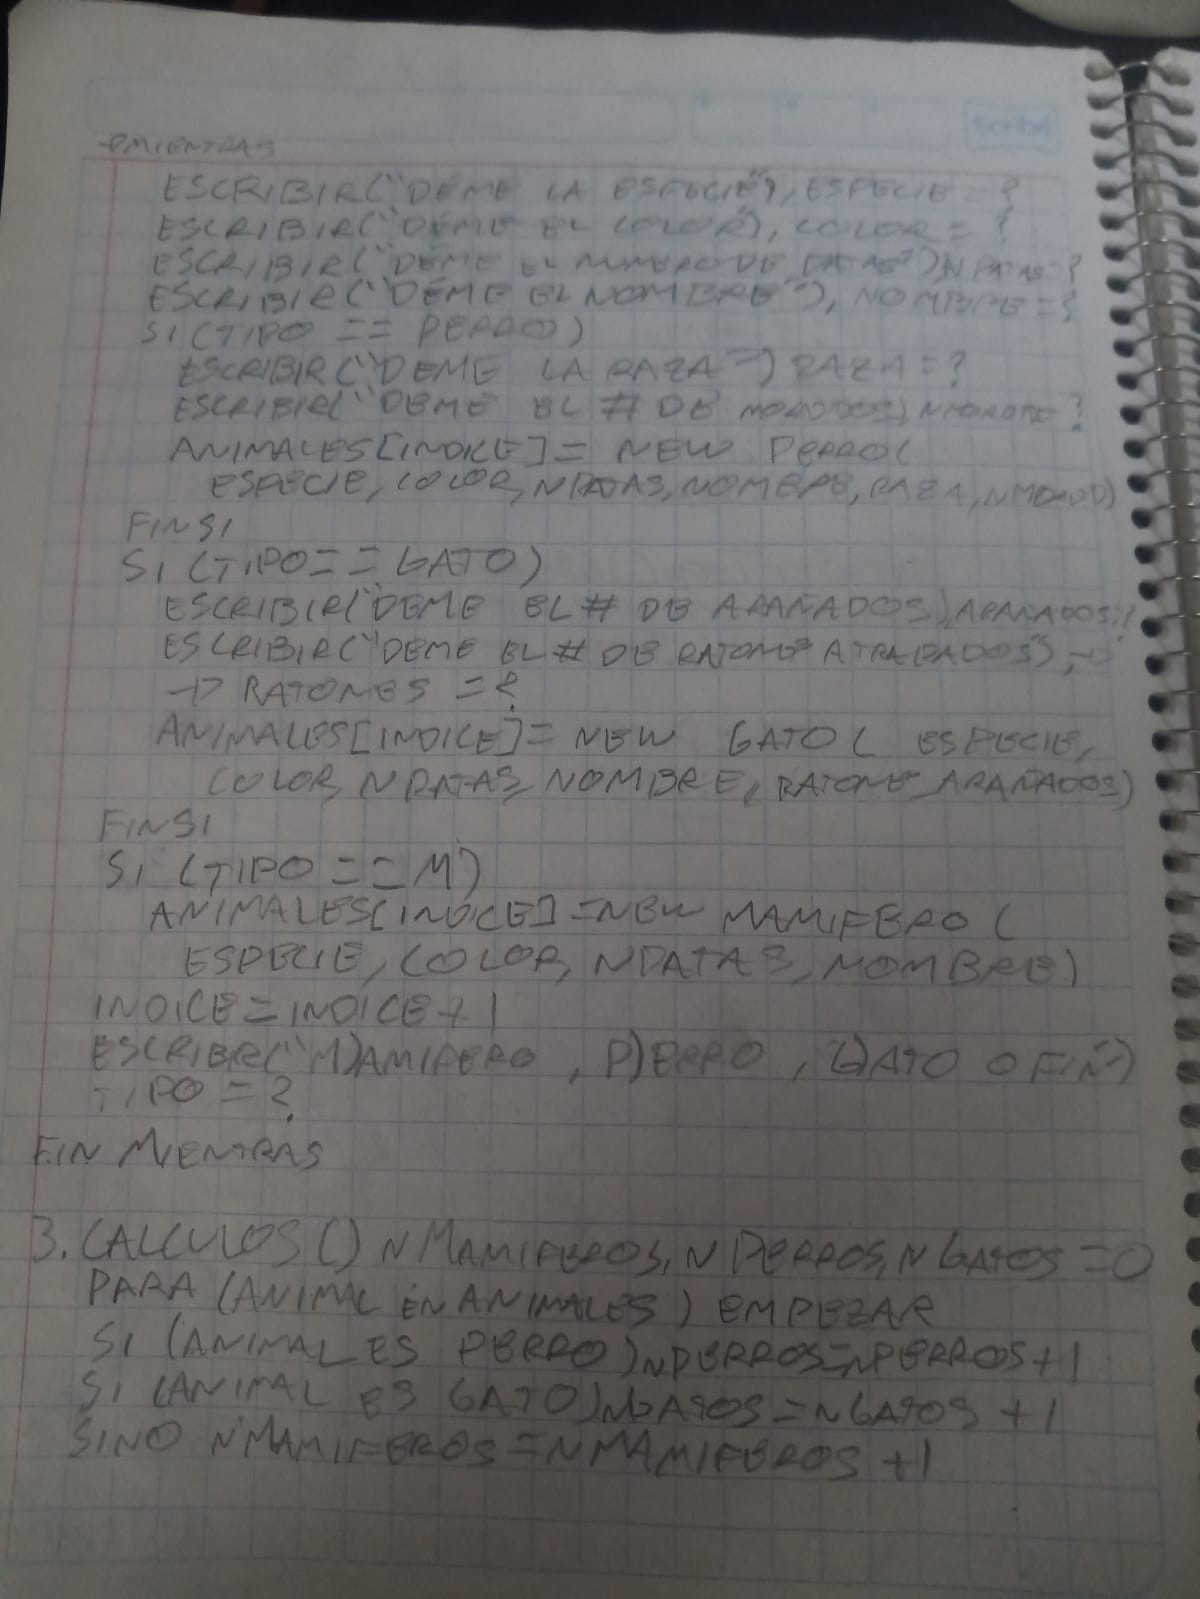 Scribe
→MIENTRAS
ESCRIBIR("DEME LA ESPECIE"), ESPECIE = ?
ESCRIBIR("DEME EL COLOR"), COLOR = ?
ESCRIBIR("DEME EL NUMERO DE PATAS") NPATAS = ?
ESCRIBIR("DEME EL NOMBRE"), NOMBRE = ?
SI (TIPO == PERRO)
ESCRIBIR("DEME LA RAZA") RAZA = ?
ESCRIBIR("DEME EL # DE
ANIMALES[INDICE] = NEW PERRO(
ESPECIE, COLOR, NPATAS, NOMBRE, RAZA,
FINSI
SI (TIPO == GATO)
ESCRIBIR("DEME EL # DE ARAÑADOS), ARAÑADOS = ?
ESCRIBIR("DEME EL # DE RATONES ATRAPADOS"), →
→ RATONES = ?
ANIMALES[INDICE] = NEW GATO( ESPECIE,
COLOR, NPATAS, NOMBRE, RATONES, ARAÑADOS)
FINSI
SI (TIPO == M)
ANIMALES[INDICE] = NEW MAMIFERO (
ESPECIE, COLOR, NPATAS, NOMBRE)
INDICE = INDICE + 1
ESCRIBIR("M)AMIFERO, P)ERRO, G)ATO O FIN")
TIPO = ?
FIN MIENTRAS
3. CALCULOS() NMAMIFEROS, NPERROS, NGATOS = 0
PARA (ANIMAL EN ANIMALES) EMPEZAR
SI (ANIMAL ES PERRO) NPERROS = NPERROS + 1
SI (ANIMAL ES GATO) NGATOS = NGATOS + 1
SINO NMAMIFEROS = NMAMIFEROS + 1